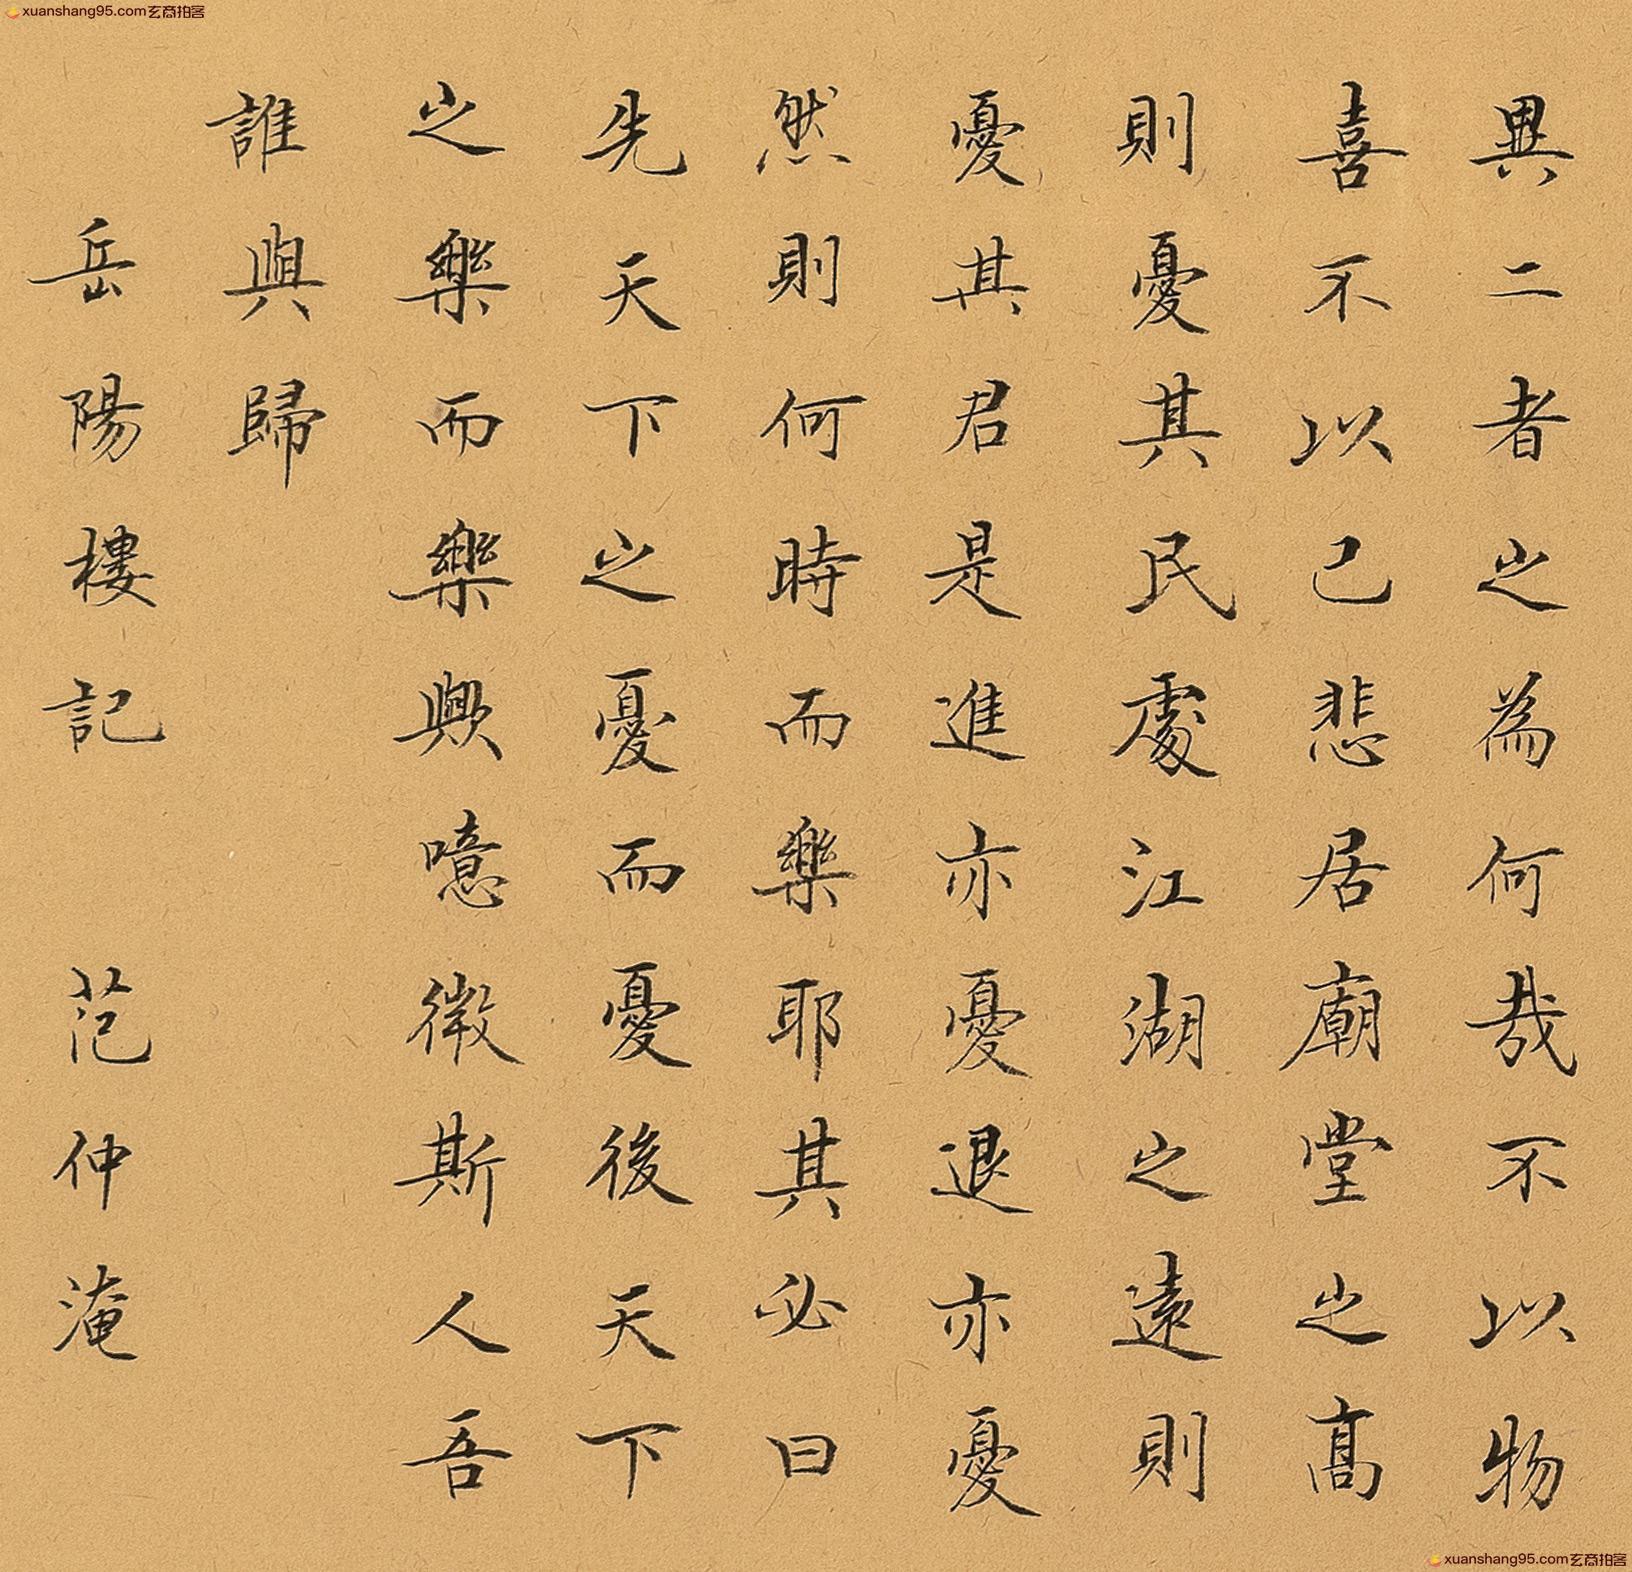 xuanshang95.com玄商拍客
異二者之為何哉不以物
喜不以己悲居廟堂之高
則憂其民處江湖之遠則
憂其君是進亦憂退亦憂
然則何時而樂耶其必曰
先天下之憂而憂後天下
之樂而樂歟噫微斯人吾
誰與歸
岳陽樓記 范仲淹
xuanshang95.com玄商拍客